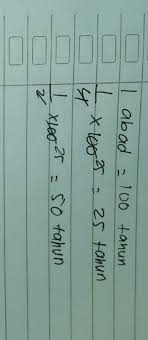 1 abad = 100 tahun
1/4 x 100 25 = 25 tahun
1/2 x 100 25 = 50 tahun